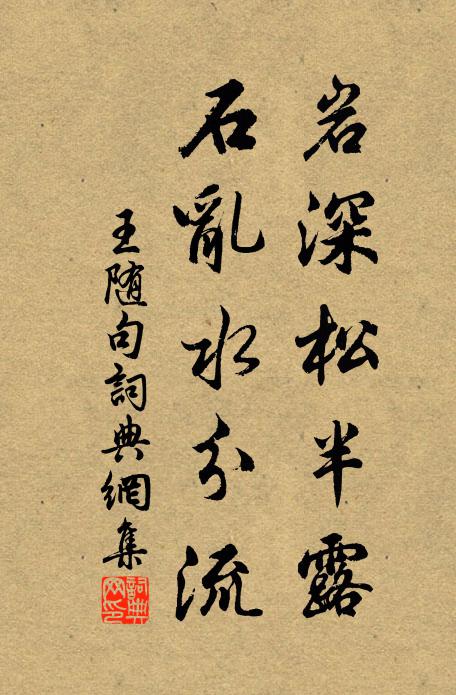 岩深松半露
石亂水分流
王随句詞典網集
詞典网印